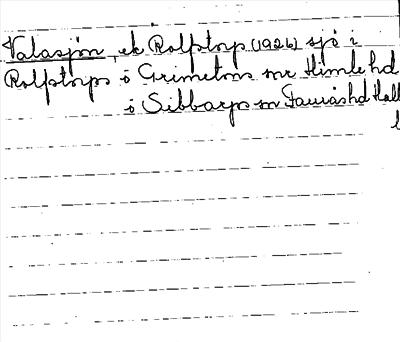 Valasjön, ek Rolfstorp (1926) sjö i
Rolfstorps o Grimetons snr Himle hd
o Sibbarps sn Faurås hd Hall
l